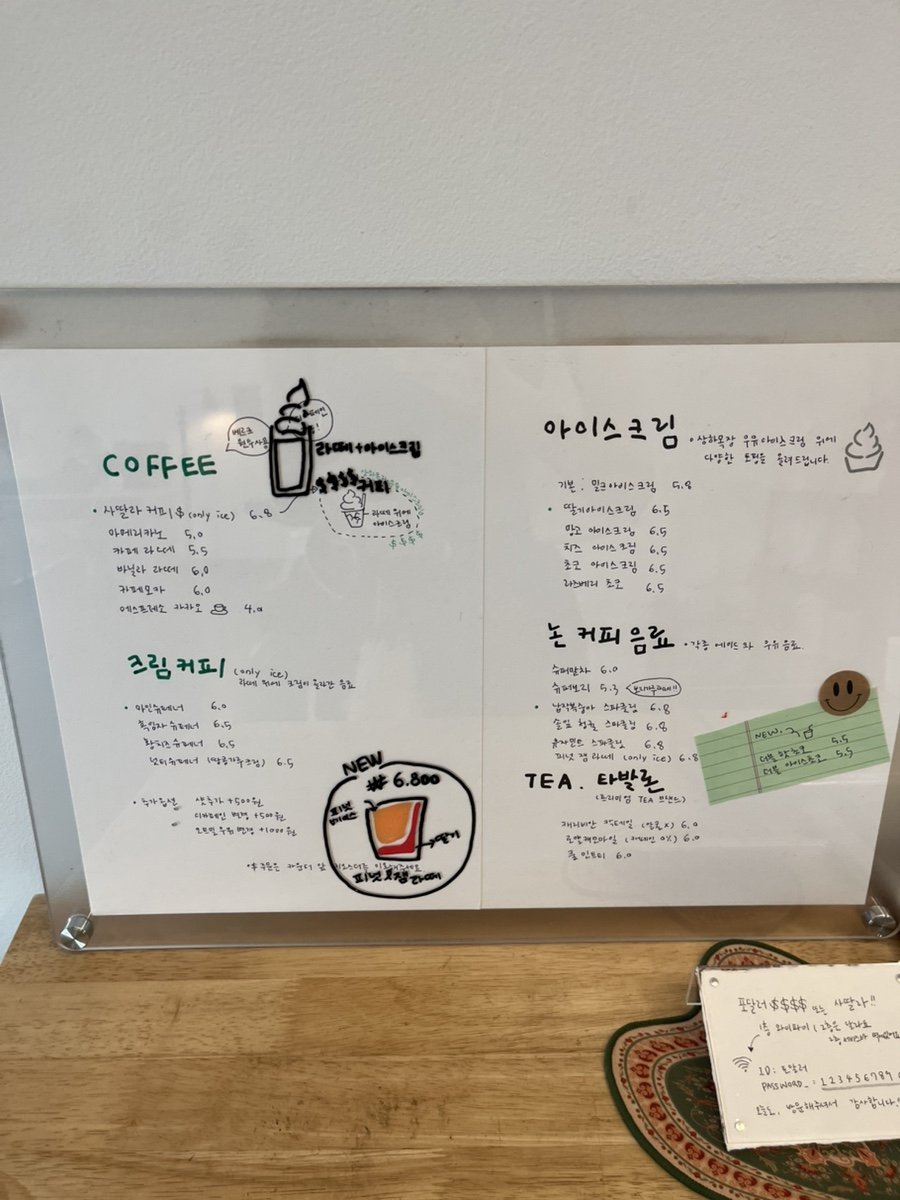 COFFEE
베르크
원두사용
라떼+아이스크림
$$$$커피
라떼 위에
아이스크림
$.$.$.$
• 사딸라 커피 $ (only ice) 6.8
아메리카노 5.0
카페 라떼 5.5
바닐라 라떼 6.0
카페모카 6.0
에스프레소 카카오 4.0
크림 커피 (only ice)
라떼 위에 크림이 올라간 음료
• 아인슈페너 6.0
흑임자 슈페너 6.5
황치즈 슈페너 6.5
넛티슈페너 (땅콩가루크림) 6.5
• 추가옵션 샷추가 +500원
디카페인 변경 +500원
오트밀 우유 변경 +1000원
NEW
₩ 6.800
피넛
딸기
피넛 잼 라떼
아이스크림
• 상하목장 우유 아이스크림 위에
다양한 토핑을 올려드립니다.
기본 : 밀크아이스크림 5.8
• 딸기아이스크림 6.5
망고 아이스크림 6.5
치즈 아이스크림 6.5
초코 아이스크림 6.5
라즈베리 초코 6.5
논 커피 음료 • 각종 에이드와 우유 음료.
슈퍼말차 6.0
슈퍼보리 5.3
• 납작복숭아 스파클링 6.8
솔잎 청귤 스파클링 6.8
유자민트 스파클링 6.8
피넛 잼 라떼 (only ice) 6.8
NEW.
더블 핫초코 5.5
더블 아이스초코 5.5
TEA. 타발론
(프리미엄 TEA 브랜드)
캐리비안 칵테일 (알콜X) 6.0
로얄캐모마일 (카페인 0%) 6.0
쿨 민트티 6.0
포달러 $$$$ 또는 사딸라!!
1층 와이파이
ID: 포달러
PASSWORD_: 123456789
오늘도, 방문해주셔서 감사합니다.